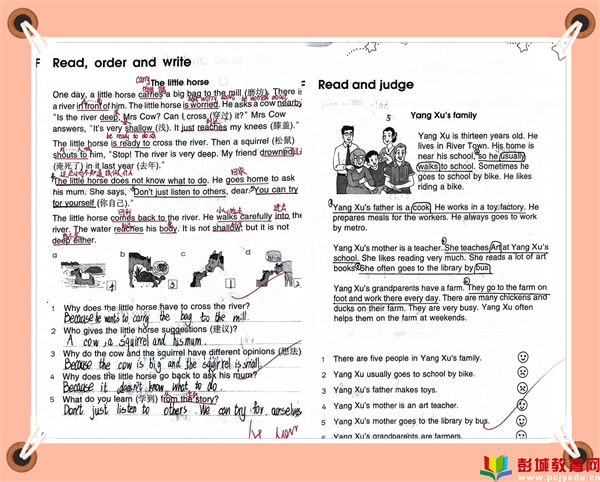 Read, order and write
carry
The little horse
One day, a little horse carries a big bag to the mill (磨坊). There is
a river in front of him. The little horse is worried. He asks a cow nearby,
"Is the river deep, Mrs Cow? Can I cross (穿过) it?" Mrs Cow
answers, "It's very shallow (浅). It just reaches my knees (膝盖)."
be ready to do
The little horse is ready to cross the river. Then a squirrel (松鼠)
shouts to him, "Stop! The river is very deep. My friend drowned
(淹死了) in it last year (去年)."
The little horse does not know what to do. He goes home to ask
his mum. She says, "Don't just listen to others, dear. You can try
for yourself (你自己)."
The little horse comes back to the river. He walks carefully into the
river. The water reaches his body. It is not shallow, but it is not
deep either.
a b c d
4 3 1 2
1 Why does the little horse have to cross the river?
Because he wants to carry the bag to the mill.
2 Who gives the little horse suggestions (建议)?
A cow, a squirrel and his mum.
3 Why do the cow and the squirrel have different opinions (想法)?
Because the cow is big and the squirrel is small.
4 Why does the little horse go back to ask his mum?
Because it doesn't know what to do.
5 What do you learn (学到) from the story?
Don't just listen to others. We can try for ourselves
Read and judge
Yang Xu's family
Yang Xu is thirteen years old. He
lives in River Town. His home is
near his school, so he usually
walks to school. Sometimes he
goes to school by bike. He likes
riding a bike.
Yang Xu's father is a cook. He works in a toy factory. He
prepares meals for the workers. He always goes to work
by metro.
Yang Xu's mother is a teacher. She teaches Art at Yang Xu's
school. She likes reading very much. She reads a lot of art
books. She often goes to the library by bus.
Yang Xu's grandparents have a farm. They go to the farm on
foot and work there every day. There are many chickens and
ducks on their farm. They are very busy. Yang Xu often
helps them on the farm at weekends.
1 There are five people in Yang Xu's family.
2 Yang Xu usually goes to school by bike.
3 Yang Xu's father makes toys.
4 Yang Xu's mother is an art teacher.
5 Yang Xu's mother goes to the library by bus.
6 Yang Xu's grandparents are farmers.
彭城教育网
www.pcjyedu.cn